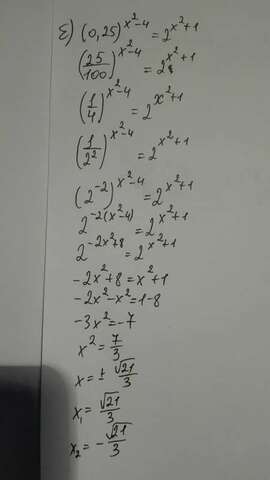 ε) (0,25)^{x²-4} = 2^{x²+1}
(25/100)^{x²-4} = 2^{x²+1}
(1/4)^{x²-4} = 2^{x²+1}
(1/2²)^{x²-4} = 2^{x²+1}
(2^{-2})^{x²-4} = 2^{x²+1}
2^{-2(x²-4)} = 2^{x²+1}
2^{-2x²+8} = 2^{x²+1}
-2x²+8 = x²+1
-2x²-x² = 1-8
-3x² = -7
x² = 7/3
x = ± √21/3
x₁ = √21/3
x₂ = - √21/3